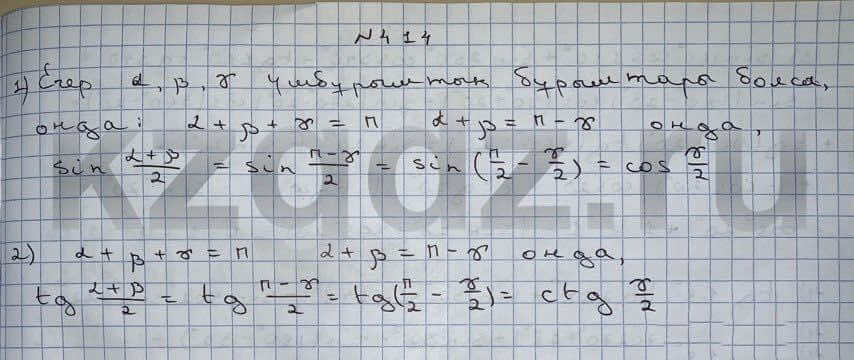 N 414
1) Егер α, β, γ үшбұрыштың бұрыштары болса,
онда: α + β + γ = π α + β = π - γ онда,
sin (α+β)/2 = sin (π-γ)/2 = sin (π/2 - γ/2) = cos γ/2
kzgdz.ru
2) α + β + γ = π α + β = π - γ онда,
tg (α+β)/2 = tg (π-γ)/2 = tg(π/2 - γ/2) = ctg γ/2